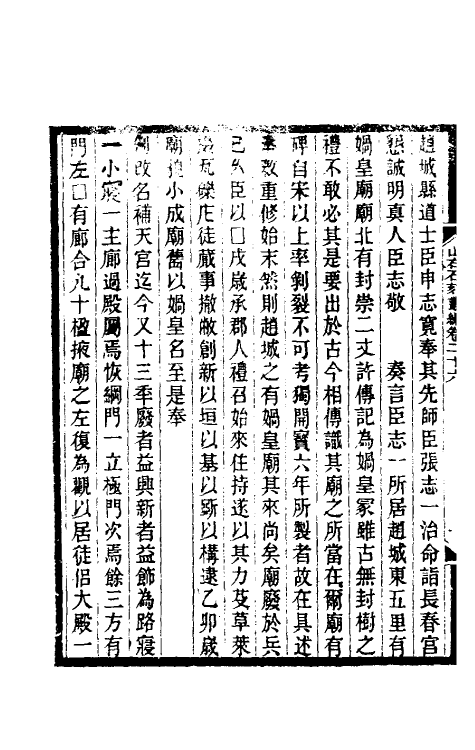 趙城縣道士臣申志寬奉其先師臣張志一治命詣長春宮
懇誠明真人臣志敬　奏言臣志一所居趙城東五里有
媧皇廟廟北有封崇二丈許傳記為媧皇冢雖古無封樹之
禮不敢必其是要出於古今相傳識其廟之所當在爾廟有
碑自宋以上率剝裂不可考獨開寶六年所製者故在具述
重修始末然則趙城之有媧皇廟其來尚矣廟廢於兵
已久臣以□戌歲承郡人禮召始來住持遂以其力芟草萊
瓦礫庀徒蕆事撤敝創新以垣以基以斲以構逮乙卯歲
廟小成廟舊以媧皇名至是奉
改名補天宮迄今又十三季廢者益興新者益飾為路寢
一小寢一主廊過殿屬焉恢綱門一立極門次焉餘三方有
門左□有廊合九十楹掖廟之左復為觀以居徒侶大殿一
山右石刻叢編卷二十六